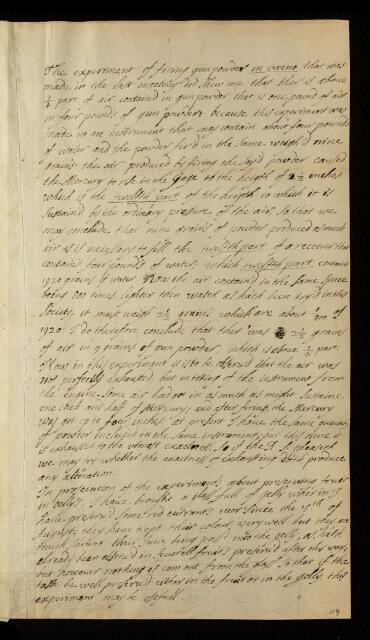 The experiment of firing gunpowder in vacuo, that was
made in the last meeting did shew me that ther is about
1/4 part of air contain'd in gunpowder, that is one pound of air
in four pounds of gun powder: because this experiment was
made in an instrument that may contain about four pounds
of water and the powder fir'd in the same weigh'd nine
grains: the air produced by firing the sayd powder caused
the Mercury to rise in the Gage to the heigth of 2 1/2 inches
which is the twelfth part of the heigth to which it is
sustained by the ordinary pressure of the air, so that we
may conclude, that nine grains of powder produced as much
air as is necessary to fill the twelfth part of a receiver that
contains four pounds of water: which twelfth part, contains
1920 grains of water. Now the air contain'd in the same space
being 800 times lighter then water as hath been try'd in this
Society, it must weigh 2 grains which are about 1/800 of
1920. I do therefore conclude that ther was 2 grains
of air in 9 grains of gun powder, which is about 1/4 part
Now in this experiment is to be observ'd that the air was
not perfectly exhausted, but in taking of the instrument from
the engine some air had got in as much as might sustaine
one inch and half of Mercury; and after firing, the Mercury
was got up to four inches: at present I have the same quantity
of powder included in the same instrument, but this time it
is exhausted to the utmost exactness, so if the R. S. pleases
we may try whether the exactness of exhausting will produce
any alteration.
In prosecution of the experiments about preserving fruit
in Gelly's, I have brought a glass full of gelly wher in I
have preserv'd some red currants ever since the 19th of
August, they have kept their colour very well but they are
much their Juice being past into the gelly, as hath
already been observ'd in severall fruits preserv'd after this way,
but however nothing is com out from the glass, so that if the
tast be well preserv'd either in the fruit or in the gelly, this
experiment may be usefull.